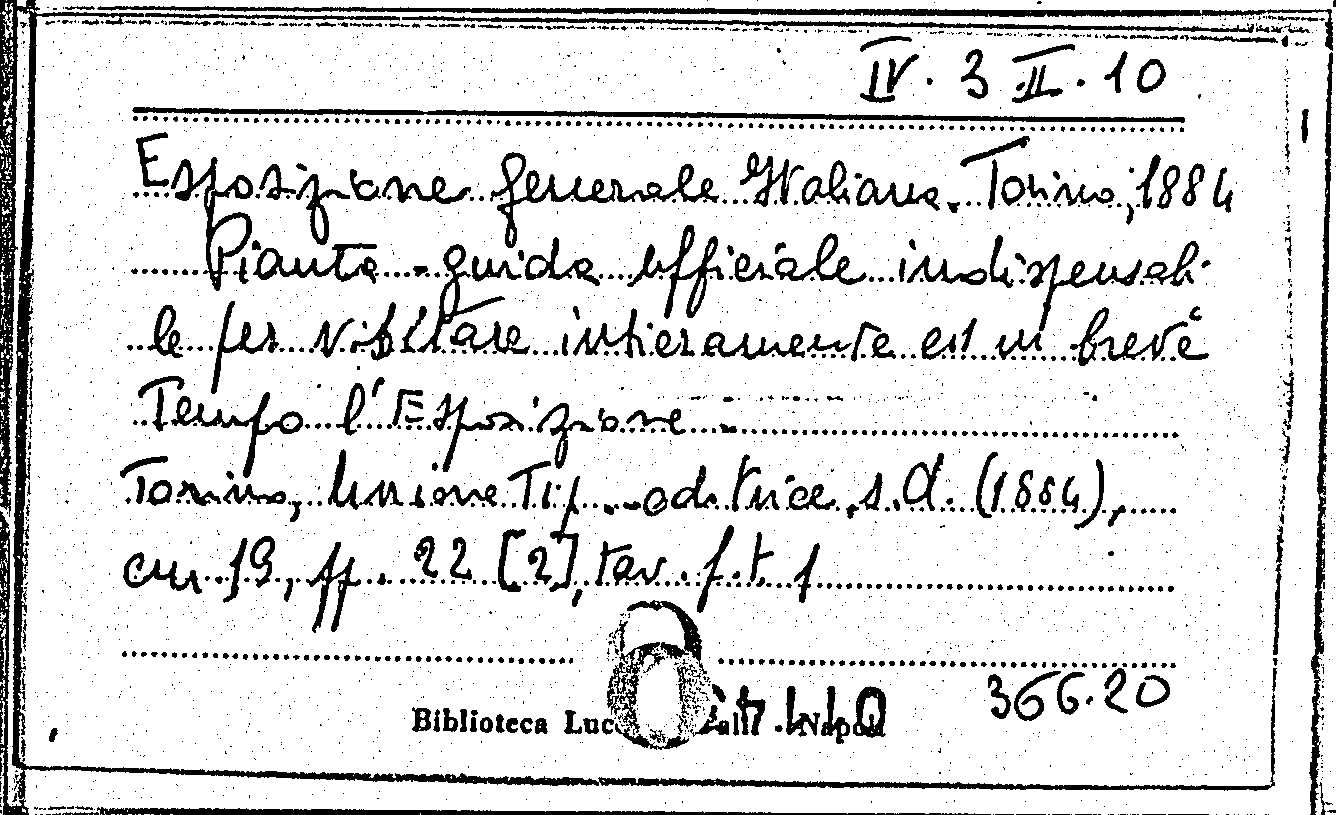 IV. 3 II. 10
Esposizione generale Italiana. Torino, 1884
Pianta-guida ufficiale indispensabi-
le per visitare intieramente ed in breve
Tempo l'Esposizione -
Torino, Unione Tip.-editrice, s.d. (1884),
cm 19, pp. 22 [2], tav. f.t. 1
366.20
Biblioteca Napoli